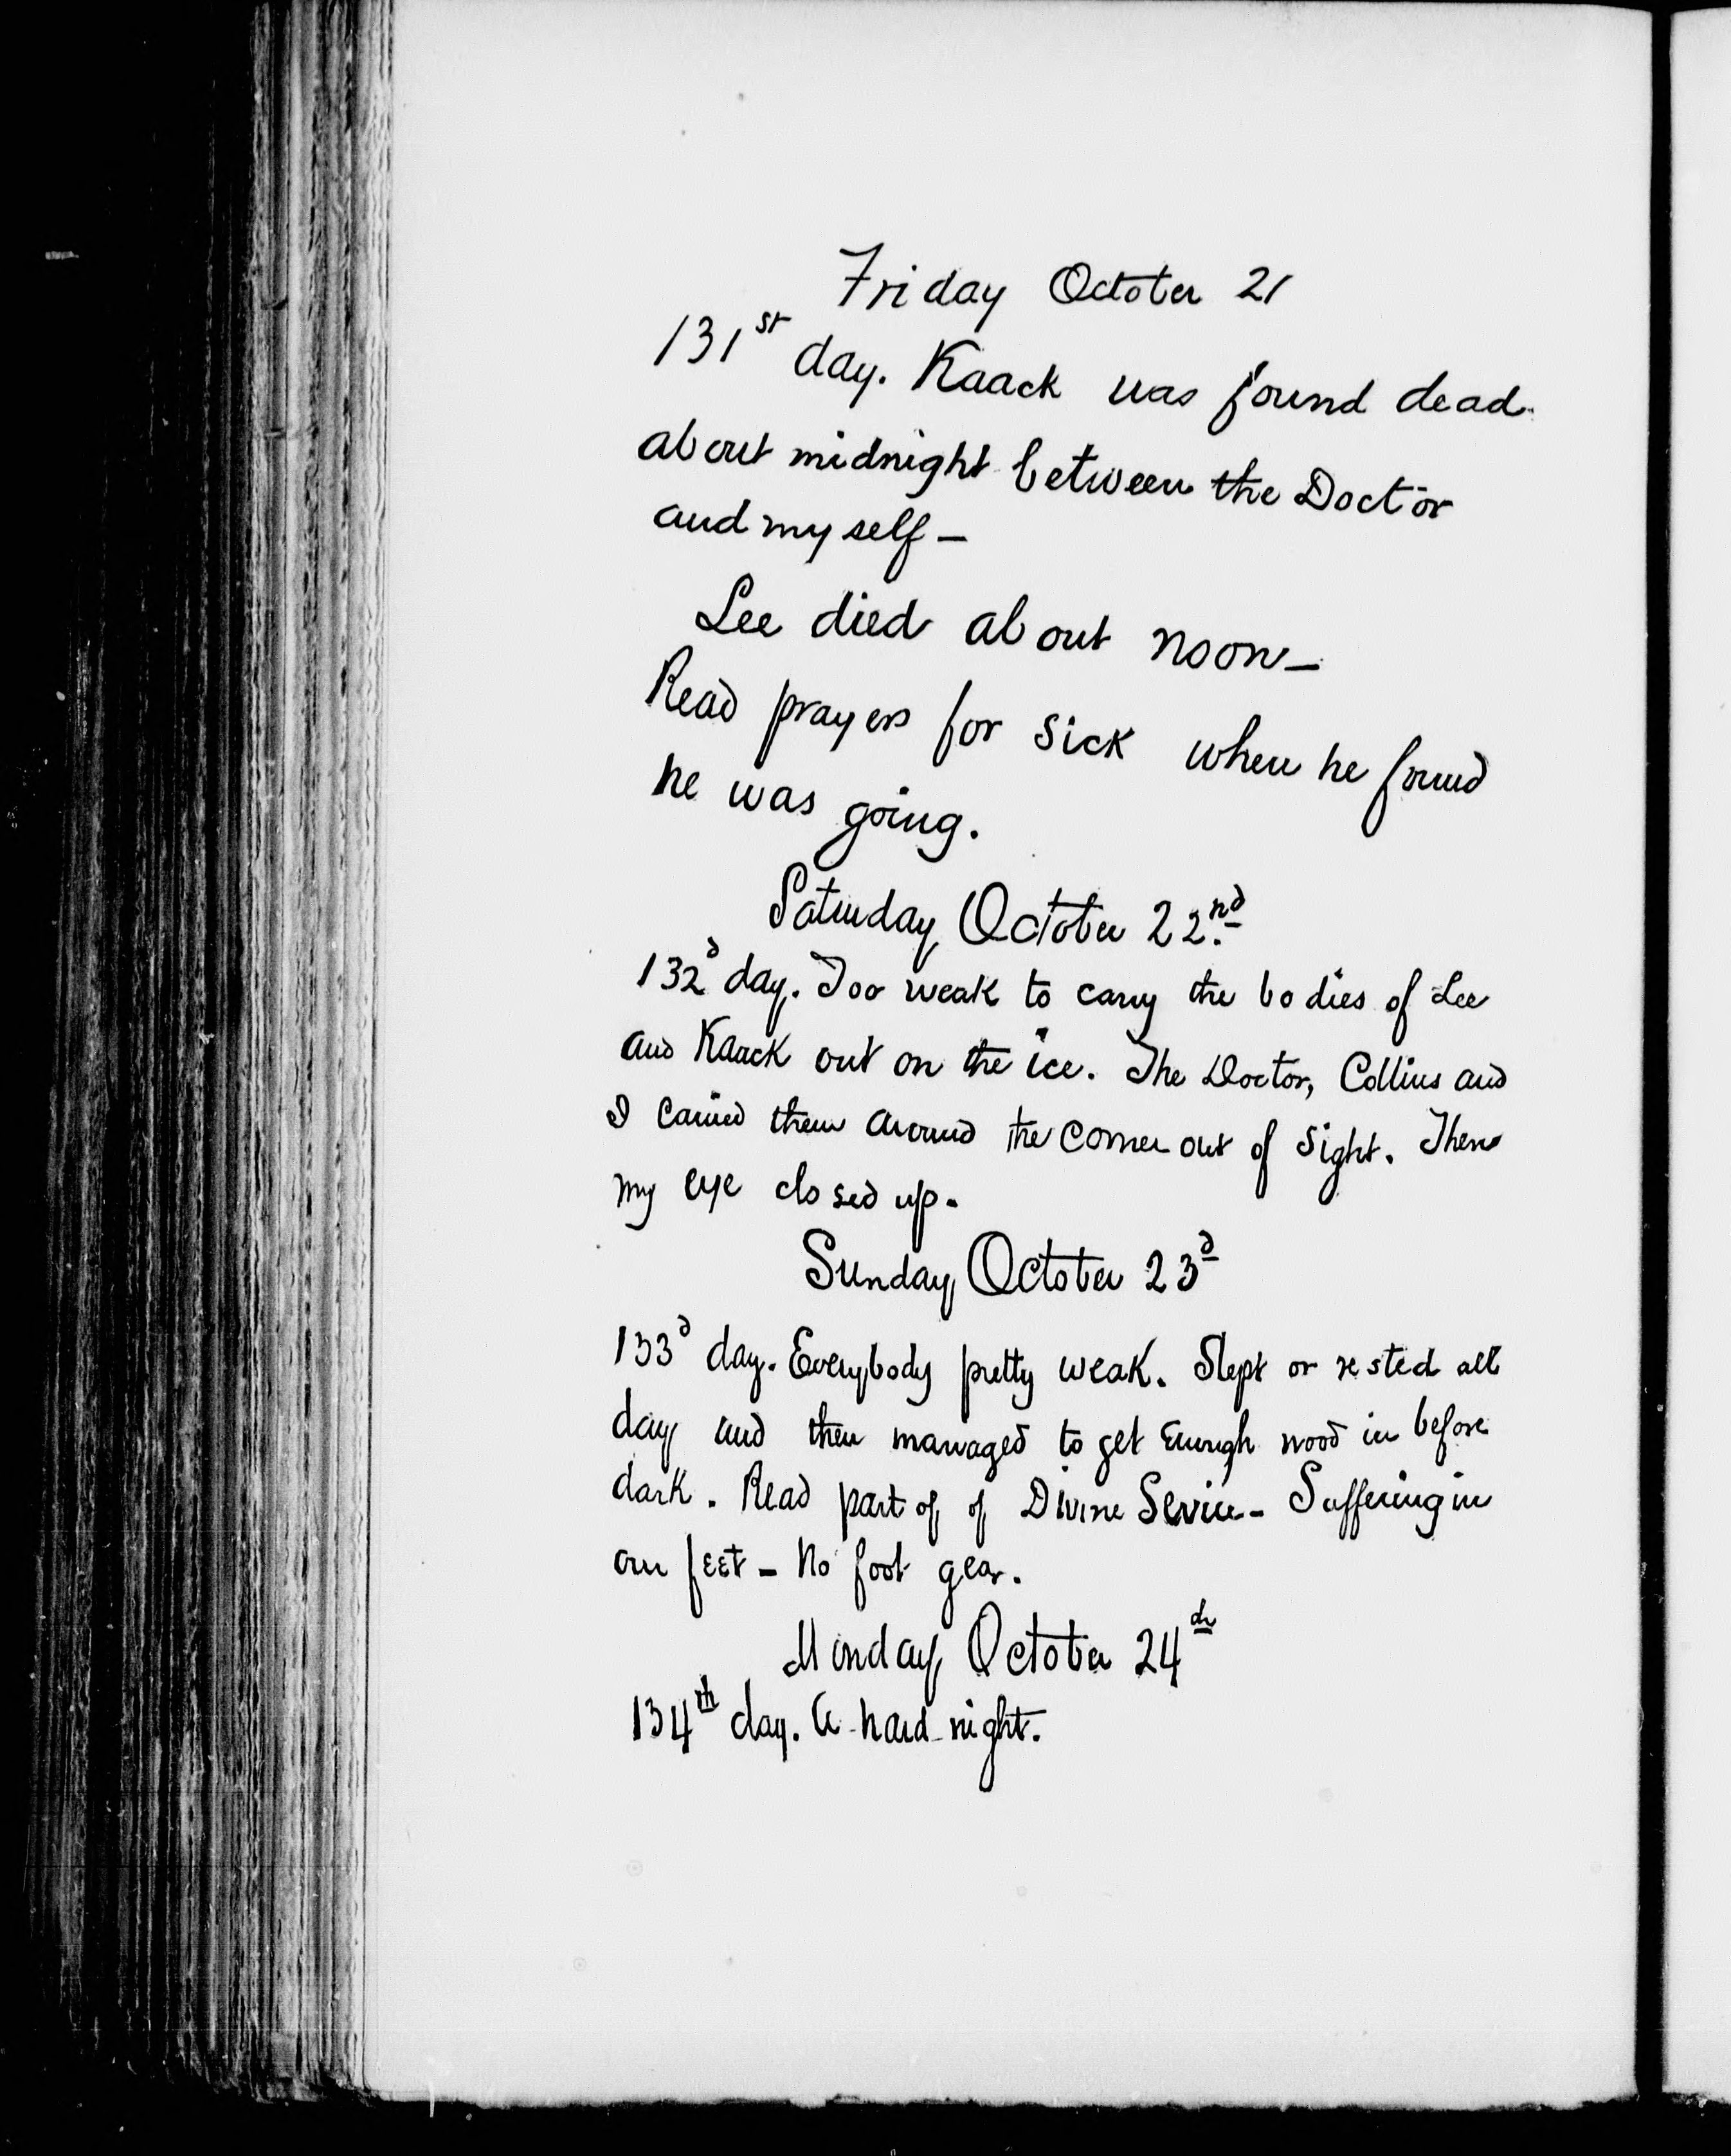 Friday October 21
131st day. Kaack was found dead
about midnight between the Doctor
and myself —
Lee died about noon —
Read prayers for sick when he found
he was going.
Saturday October 22.nd
132d day. Too weak to carry the bodies of Lee
and Kaack out on the ice. The Doctor, Collins and
I carried them around the corner out of sight. Then
my eye closed up.
Sunday October 23d
133d day. Everybody pretty weak. Slept or rested all
day and then managed to get enough wood in before
dark. Read part of of Divine Service — Suffering in
our feet — No foot gear.
Monday October 24th
134th day. A hard night.